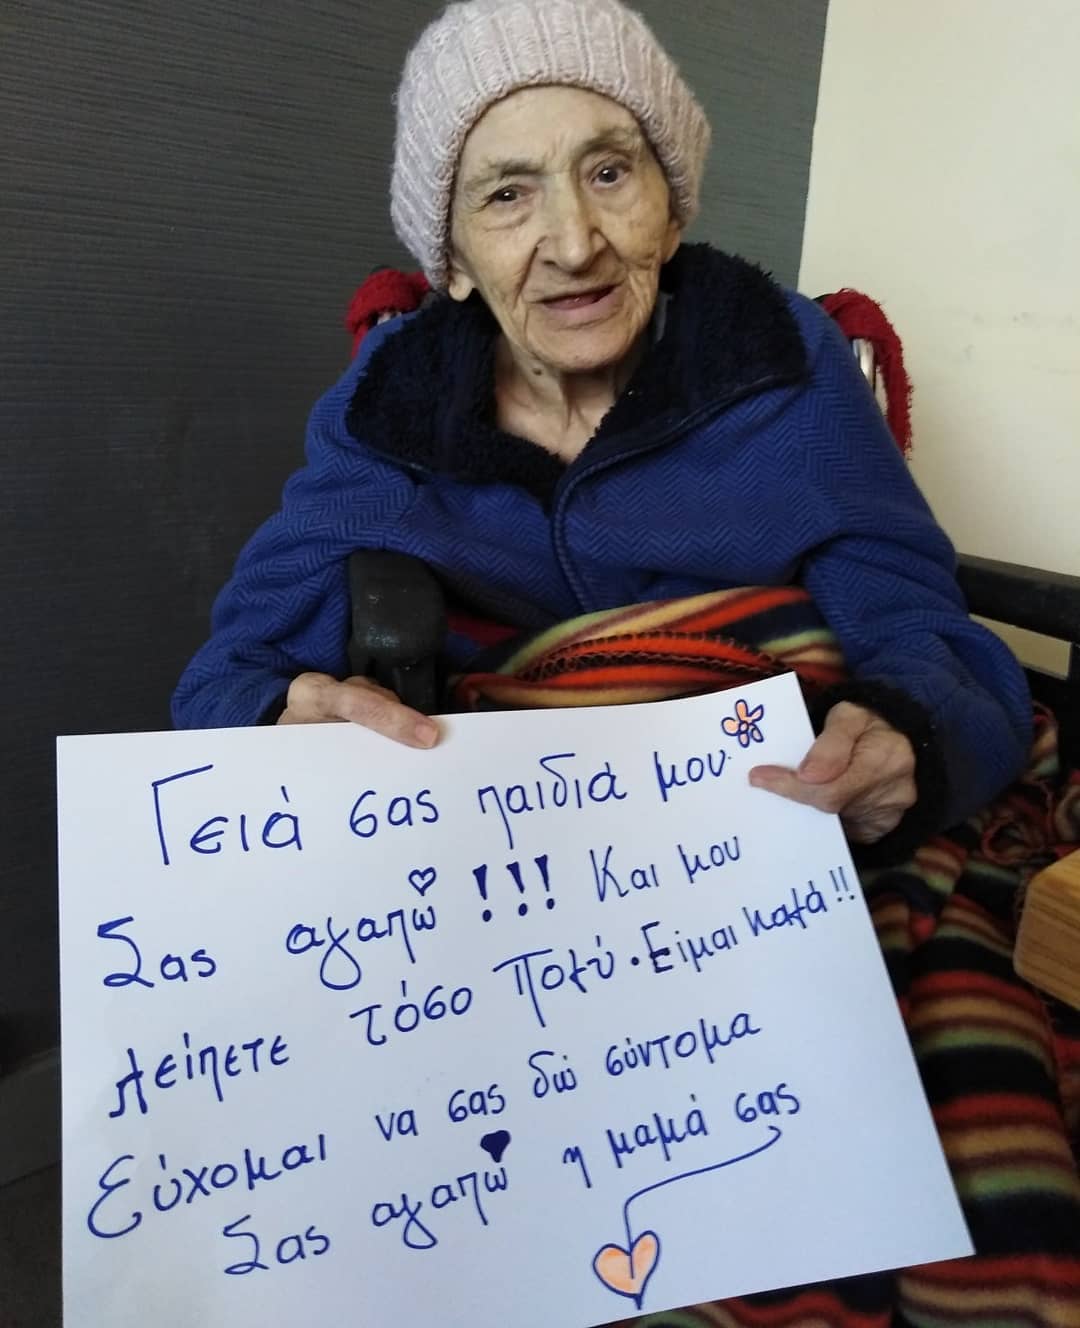 Γειά σας παιδιά μου
Σας αγαπώ !!! Και μου
λείπετε τόσο πολύ. Είμαι καλά!!
Εύχομαι να σας δώ σύντομα
Σας αγαπώ η μαμά σας